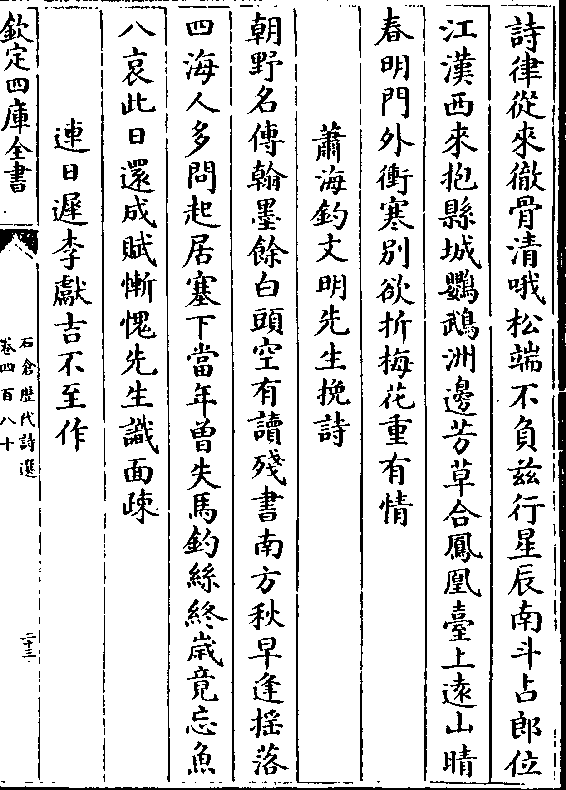 詩律從來徹骨清哦松端不負兹行星辰南斗占郎位
江漢西來抱縣城鸚鵡洲邊芳草合鳳凰臺上逺山晴
春明門外衝寒別欲折梅花重有情
蕭海釣文明先生挽詩
朝野名傳翰墨餘白頭空有讀殘書南方秋早逢揺落
四海人多問起居塞下當年曽失馬釣絲終嵗竟忘魚
八哀此日還成賦慚愧先生識面疎
連日遲李獻吉不至作
欽定四庫全書
石倉歴代詩選
卷四百八十
二十三